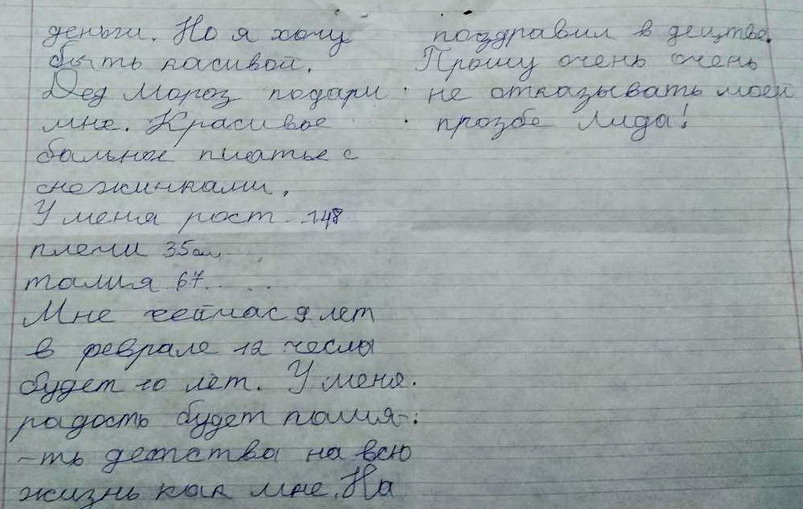 деньги. Но я хочу
быть касивой.
Дед Мороз подари
мне. Красивое
бальное платье с
снежинками,
У меня рост 148
плечи 35см
талия 67
Мне сейчас 9 лет
в феврале 12 чеслы
будет 10 лет. У меня
радость будет памя-
-ть детства на всю
жизнь как мне. На
поздравил в децтве.
Прошу очень очень
не отказывать моей
прозбе Лида!